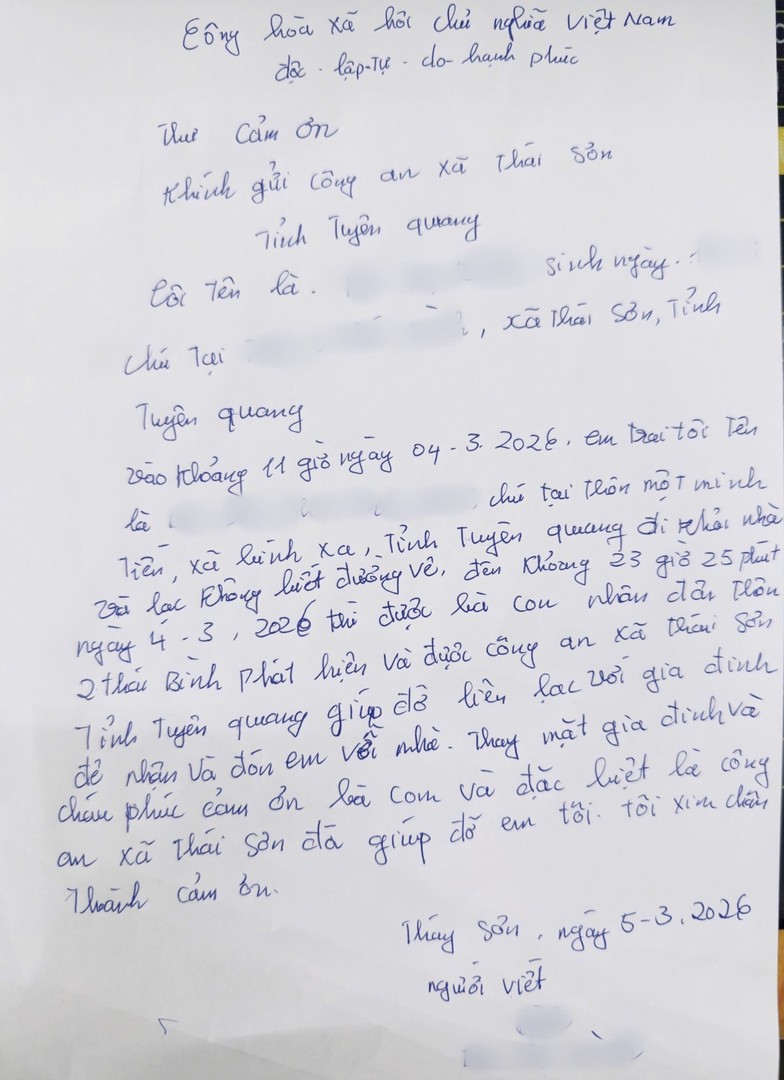 Công hòa xã hôi chủ nghĩa Việt Nam
độc - lập-Tự - do-hạnh phúc
Thư Cảm ơn
Khính gửi Công an xã Thái Sơn
Tỉnh Tuyên quang
Tôi Tên là. sinh ngày.
Chú Tại , xã Thái Sơn, Tỉnh
Tuyên quang
vào Khoảng 11 giờ ngày 04-3.2026. em trai tôi Tên
là chú tại thôn một minh
Tiến, xã bình xa, Tỉnh Tuyên quang đi khỏi nhà
và lạc Không biết đường về, đến khoảng 23 giờ 25 phút
ngày 4-3, 2026 thì được bà con nhân dân thôn
2 thái Bình phát hiện và được công an xã thái sơn
Tỉnh Tuyên quang giúp đỡ liên lạc với gia đình
để nhận và đón em về nhà. Thay mặt gia đình và
cháu phúc cảm ơn bà con và đặc biệt là công
an xã thái sơn đã giúp đỡ em tôi. tôi xin chân
Thành cảm ơn.
Tháy sơn, ngày 5-3.2026
người viết